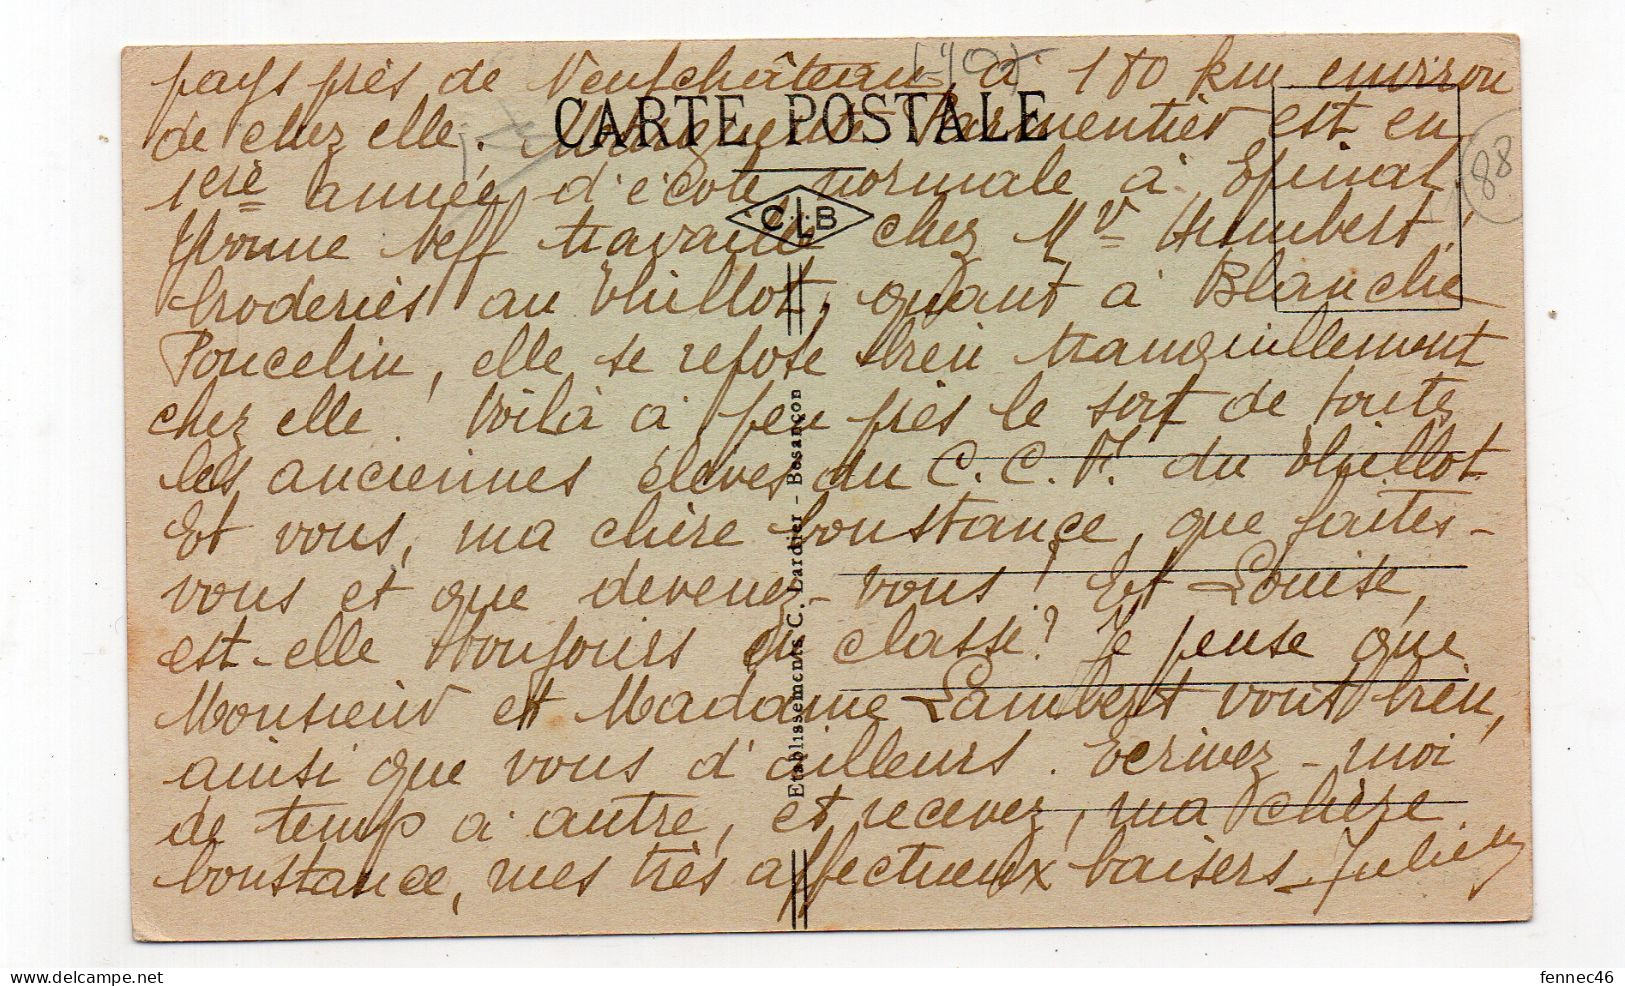 pays près de Neufchâteau, à 180 km environ
CARTE POSTALE
de chez elle. Marguerite Parmentier est en
1ère année d'école normale à Epinal,
88
Yvonne Neff travaille chez Mr Humbert,
C.L.B
broderies au Thillot, quant à Blanche
Poucelin, elle se repose bien tranquillement
chez elle. Voilà à peu près le sort de toutes
les anciennes élèves du C.C.F. du Thillot.
Et vous, ma chère Constance, que faites-
vous et que devenez-vous! Et Louise,
est-elle toujours en classe? Je pense que
Monsieur et Madame Lambert vont bien,
ainsi que vous d'ailleurs. Ecrivez-moi
de temp à autre, et recevez, ma chère
Constance, mes très affectueux baisers.
Etablissements C. Lardier - Besançon
fennec46